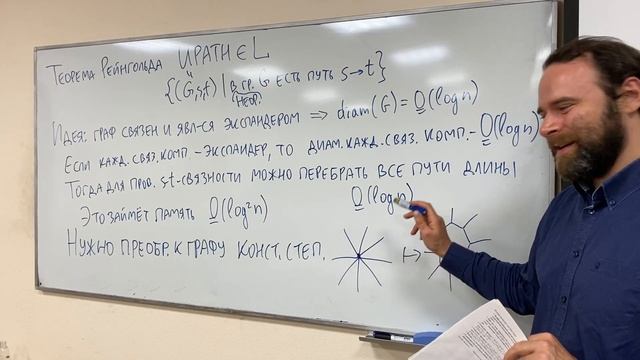 ТЕОРЕМА РЕЙНГОЛЬДА UPATH ∈ L
{(G,s,t) | В ГР. G ЕСТЬ ПУТЬ s→t}
НЕОР.
ИДЕЯ: ГРАФ СВЯЗЕН И ЯВЛ-СЯ ЭКСПАНДЕРОМ ⇒ diam(G) = O(log n)
ЕСЛИ КАЖД. СВЯЗ. КОМП. - ЭКСПАНДЕР, ТО ДИАМ. КАЖД. СВЯЗ. КОМП. - O(log n)
ТОГДА ДЛЯ ПРОВ. st-СВЯЗНОСТИ МОЖНО ПЕРЕБРАТЬ ВСЕ ПУТИ ДЛИНЫ
O(log n)
ЭТО ЗАЙМЁТ ПАМЯТЬ O(log²n)
НУЖНО ПРЕОБР. К ГРАФУ КОНСТ. СТЕП. ↦